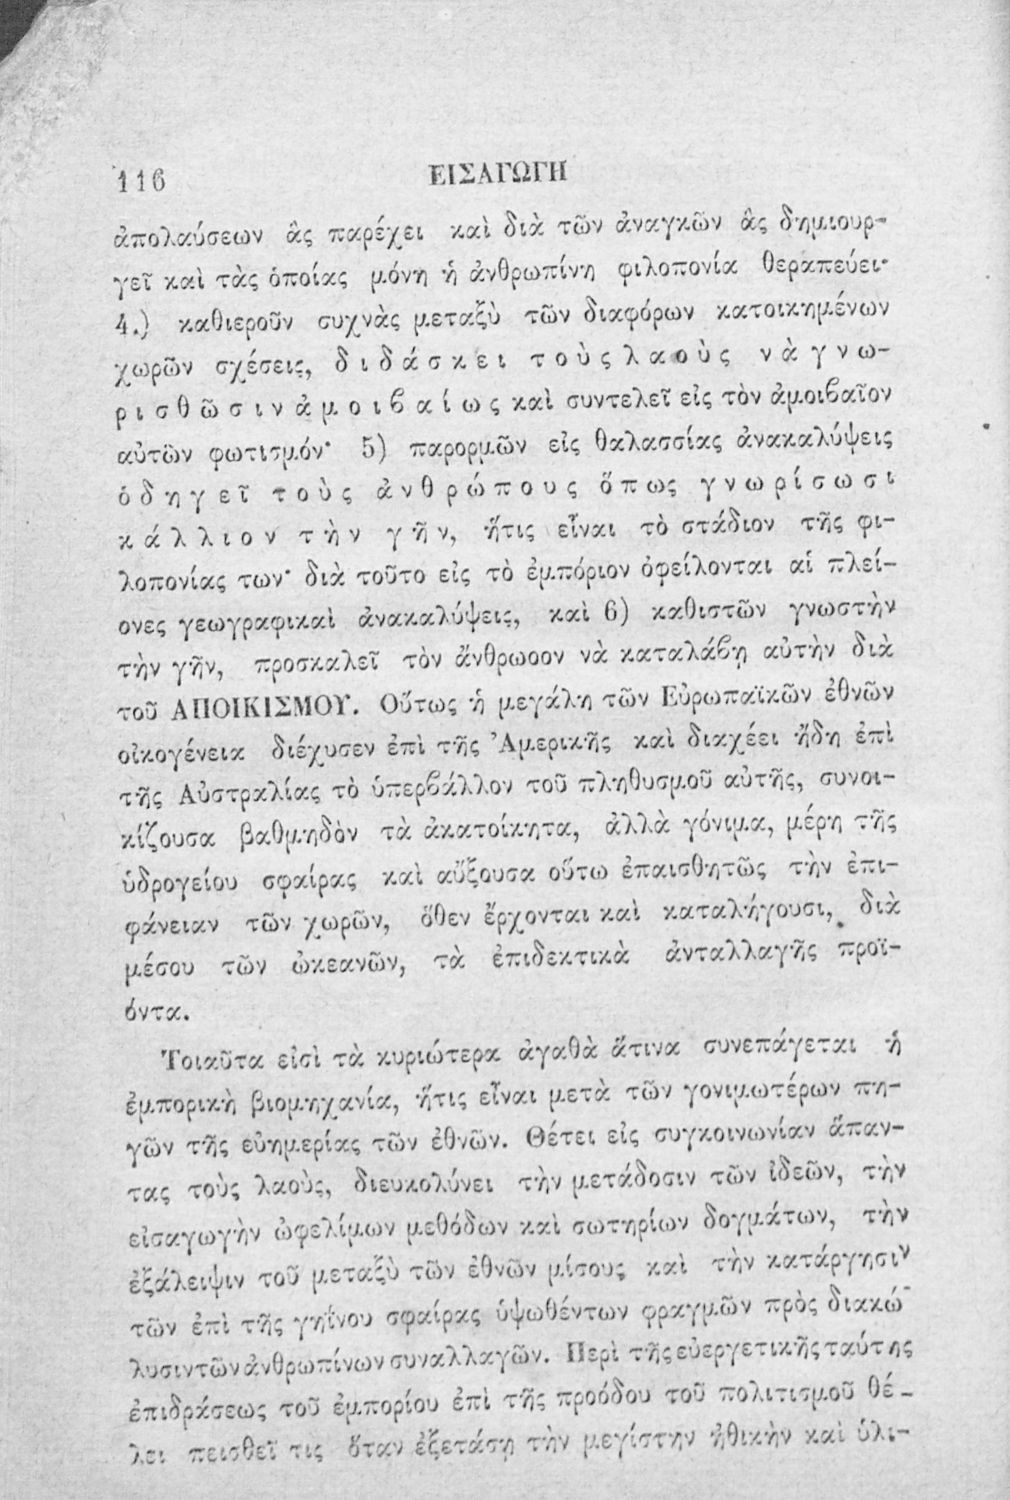 116 ΕΙΣΑΓΩΓΗ
ἀπολαύσεων ἃς παρέχει καὶ διὰ τῶν ἀναγκῶν ἃς δημιουρ-
γεῖ καὶ τὰς ὁποίας μόνη ἡ ἀνθρωπίνη φιλοπονία θεραπεύει·
4.) καθιεροῦν συχνὰς μεταξὺ τῶν διαφόρων κατοικημένων
χωρῶν σχέσεις, διδάσκει τοὺς λαοὺς νὰ γνω-
ρισθῶσιν ἀμοιβαίως καὶ συντελεῖ εἰς τὸν ἀμοιβαῖον
αὐτῶν φωτισμόν· 5) παρορμῶν εἰς θαλασσίας ἀνακαλύψεις
ὁδηγεῖ τοὺς ἀνθρώπους ὅπως γνωρίσωσι
κάλλιον τὴν γῆν, ἥτις εἶναι τὸ στάδιον τῆς φι-
λοπονίας των· διὰ τοῦτο εἰς τὸ ἐμπόριον ὀφείλονται αἱ πλεί-
ονες γεωγραφικαὶ ἀνακαλύψεις, καὶ 6) καθιστῶν γνωστὴν
τὴν γῆν, προσκαλεῖ τὸν ἄνθρωοον νὰ καταλάβῃ αὐτὴν διὰ
τοῦ ΑΠΟΙΚΙΣΜΟΥ. Οὕτως ἡ μεγάλη τῶν Εὐρωπαϊκῶν ἐθνῶν
οἰκογένεια διέχυσεν ἐπὶ τῆς Ἀμερικῆς καὶ διαχέει ἤδη ἐπὶ
τῆς Αὐστραλίας τὸ ὑπερβάλλον τοῦ πληθυσμοῦ αὐτῆς, συνοι-
κίζουσα βαθμηδὸν τὰ ἀκατοίκητα, ἀλλὰ γόνιμα, μέρη τῆς
ὑδρογείου σφαίρας καὶ αὔξουσα οὕτω ἐπαισθητῶς τὴν ἐπι-
φάνειαν τῶν χωρῶν, ὅθεν ἔρχονται καὶ καταλήγουσι, διὰ
μέσου τῶν ὠκεανῶν, τὰ ἐπιδεκτικὰ ἀνταλλαγῆς προϊ-
όντα.
Τοιαῦτα εἰσὶ τὰ κυριώτερα ἀγαθὰ ἅτινα συνεπάγεται ἡ
ἐμπορικὴ βιομηχανία, ἥτις εἶναι μετὰ τῶν γονιμωτέρων πη-
γῶν τῆς εὐημερίας τῶν ἐθνῶν. Θέτει εἰς συγκοινωνίαν ἅπαν-
τας τοὺς λαοὺς, διευκολύνει τὴν μετάδοσιν τῶν ἰδεῶν, τὴν
εἰσαγωγὴν ὠφελίμων μεθόδων καὶ σωτηρίων δογμάτων, τὴν
ἐξάλειψιν τοῦ μεταξὺ τῶν ἐθνῶν μίσους καὶ τὴν κατάργησιν
τῶν ἐπὶ τῆς γηΐνου σφαίρας ὑψωθέντων φραγμῶν πρὸς διακώ-
λυσιν τῶν ἀνθρωπίνων συναλλαγῶν. Περὶ τῆς εὐεργετικῆς ταύτης
ἐπιδράσεως τοῦ ἐμπορίου ἐπὶ τῆς προόδου τοῦ πολιτισμοῦ θέ-
λει πεισθεῖ τις ὅταν ἐξετάσῃ τὴν μεγίστην ἠθικὴν καὶ ὑλι-